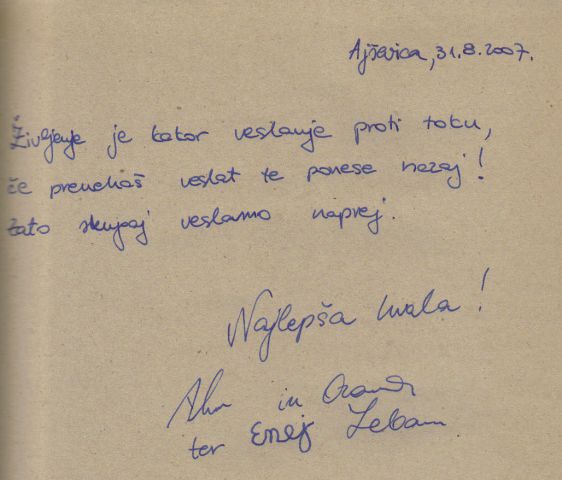 Ajševica, 31.8.2007.
Življenje je kakor veslanje proti toku,
če prenehaš veslat te ponese nazaj!
Zato skupaj veslamo naprej.
Najlepša hvala!
in
ter Enej Leban